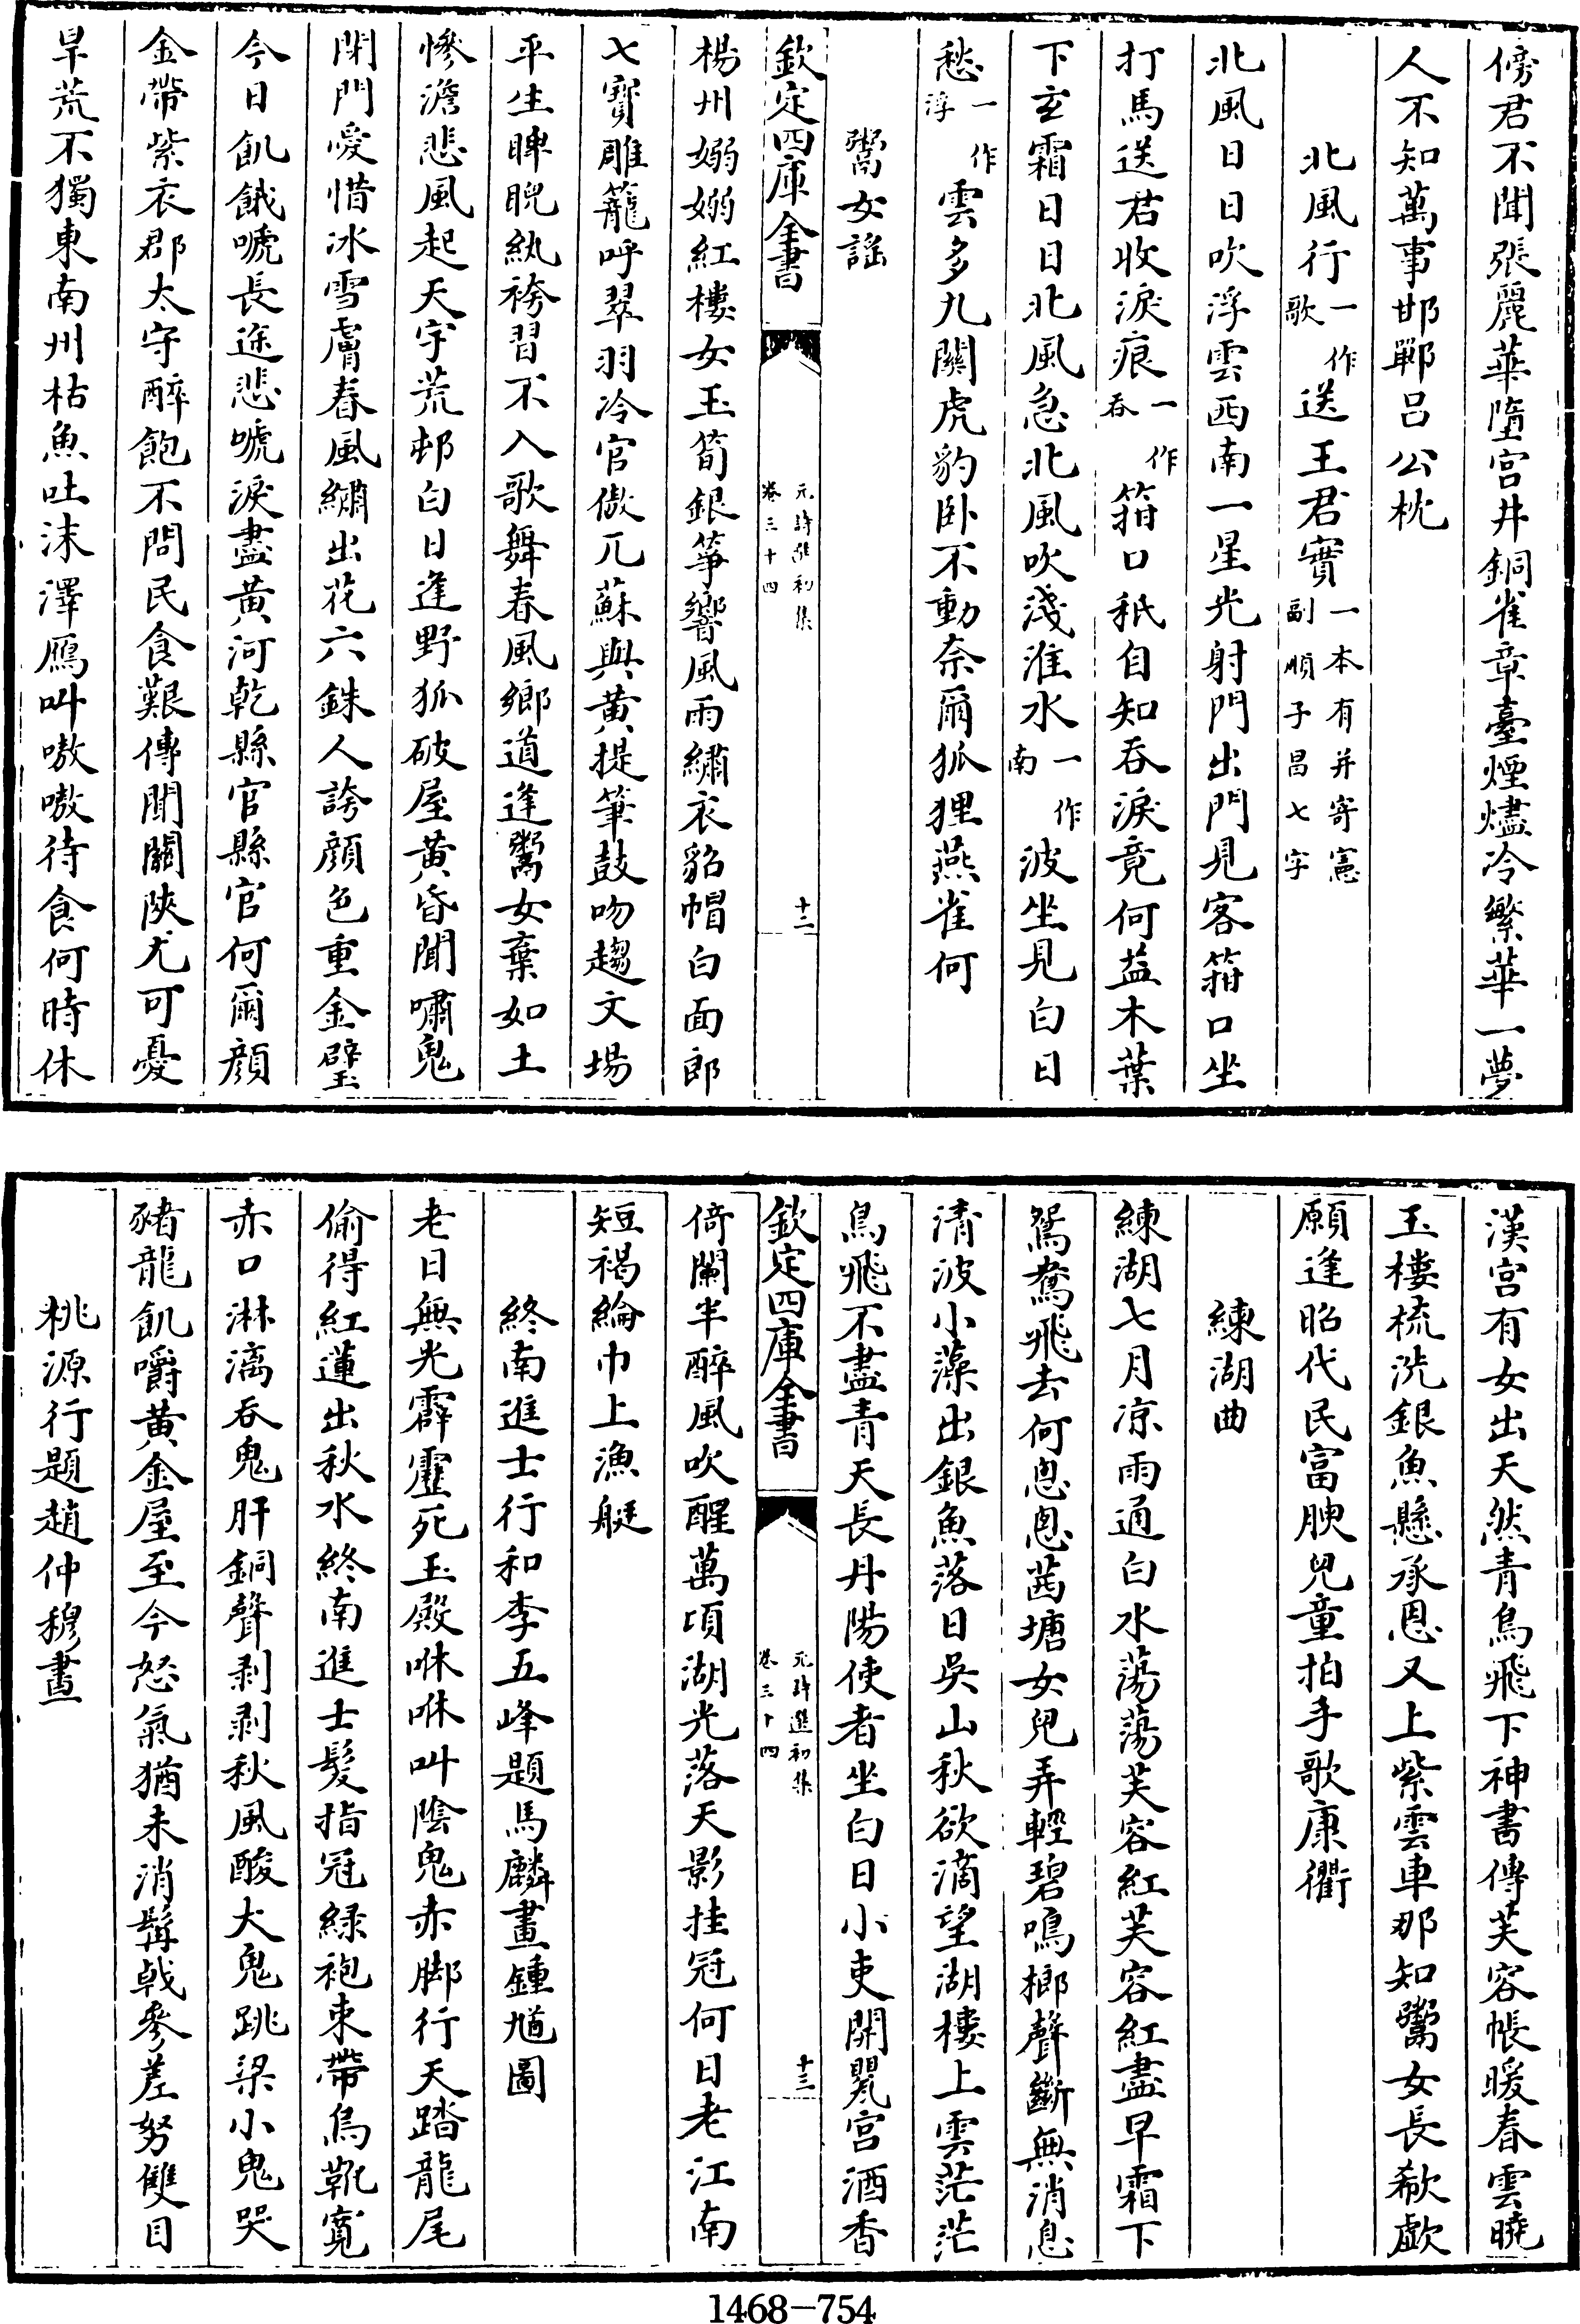 傍君不聞張麗華墮宮井銅雀章臺煙燼冷繁華一夢
人不知萬事邯鄲呂公枕
北風行一作歌送王君實一本有并寄憲副順子昌七字
北風日日吹浮雲西南一星光射門出門見客箝口坐
打馬送君收淚痕一作吞箝口秪自知吞淚竟何益木葉
下玄霜日日北風急北風吹淺淮水一作南波坐見白日
愁一作浮雲多九關虎豹臥不動奈爾狐狸燕雀何
鬻女謠
欽定四庫全書
元詩選初集
卷三十四
十二
楊州嫋嫋紅樓女玉筍銀箏響風雨繡衣貂帽白面郎
七寶雕籠呼翠羽冷官傲兀蘇與黃提筆鼓吻趨文場
平生睥睨紈袴習不入歌舞春風鄉道逢鬻女棄如土
慘澹悲風起天宇荒邨白日逢野狐破屋黃昏聞嘯鬼
閉門愛惜冰雪膚春風繡出花六銖人誇顏色重金璧
今日飢餓啼長途悲啼淚盡黃河乾縣官縣官何爾顏
金帶紫衣郡太守醉飽不問民食艱傳聞關陝尤可憂
旱荒不獨東南州枯魚吐沫澤鴈叫嗷嗷待食何時休
漢宮有女出天然青鳥飛下神書傳芙容帳暖春雲曉
玉樓梳洗銀魚懸承恩又上紫雲車那知鬻女長欷歔
願逢昭代民富腴兒童拍手歌康衢
練湖曲
練湖七月凉雨通白水蕩蕩芙容紅芙容紅盡早霜下
鴛鴦飛去何悤悤茜塘女兒弄輕碧鳴榔聲斷無消息
清波小藻出銀魚落日吳山秋欲滴望湖樓上雲茫茫
鳥飛不盡青天長丹陽使者坐白日小吏開甖宮酒香
欽定四庫全書
元詩選初集
卷三十四
十三
倚闌半醉風吹醒萬頃湖光落天影挂冠何日老江南
短褐綸巾上漁艇
終南進士行和李五峰題馬麟畫鍾馗圖
老日無光霹靂死玉殿咻咻叫陰鬼赤脚行天踏龍尾
偷得紅蓮出秋水終南進士髮指冠綠袍束帶烏靴寬
赤口淋漓吞鬼肝銅聲剥剥秋風酸大鬼跳梁小鬼哭
豬龍飢嚼黃金屋至今怒氣猶未消髯戟參差努雙目
桃源行題趙仲穆畫
1468-754